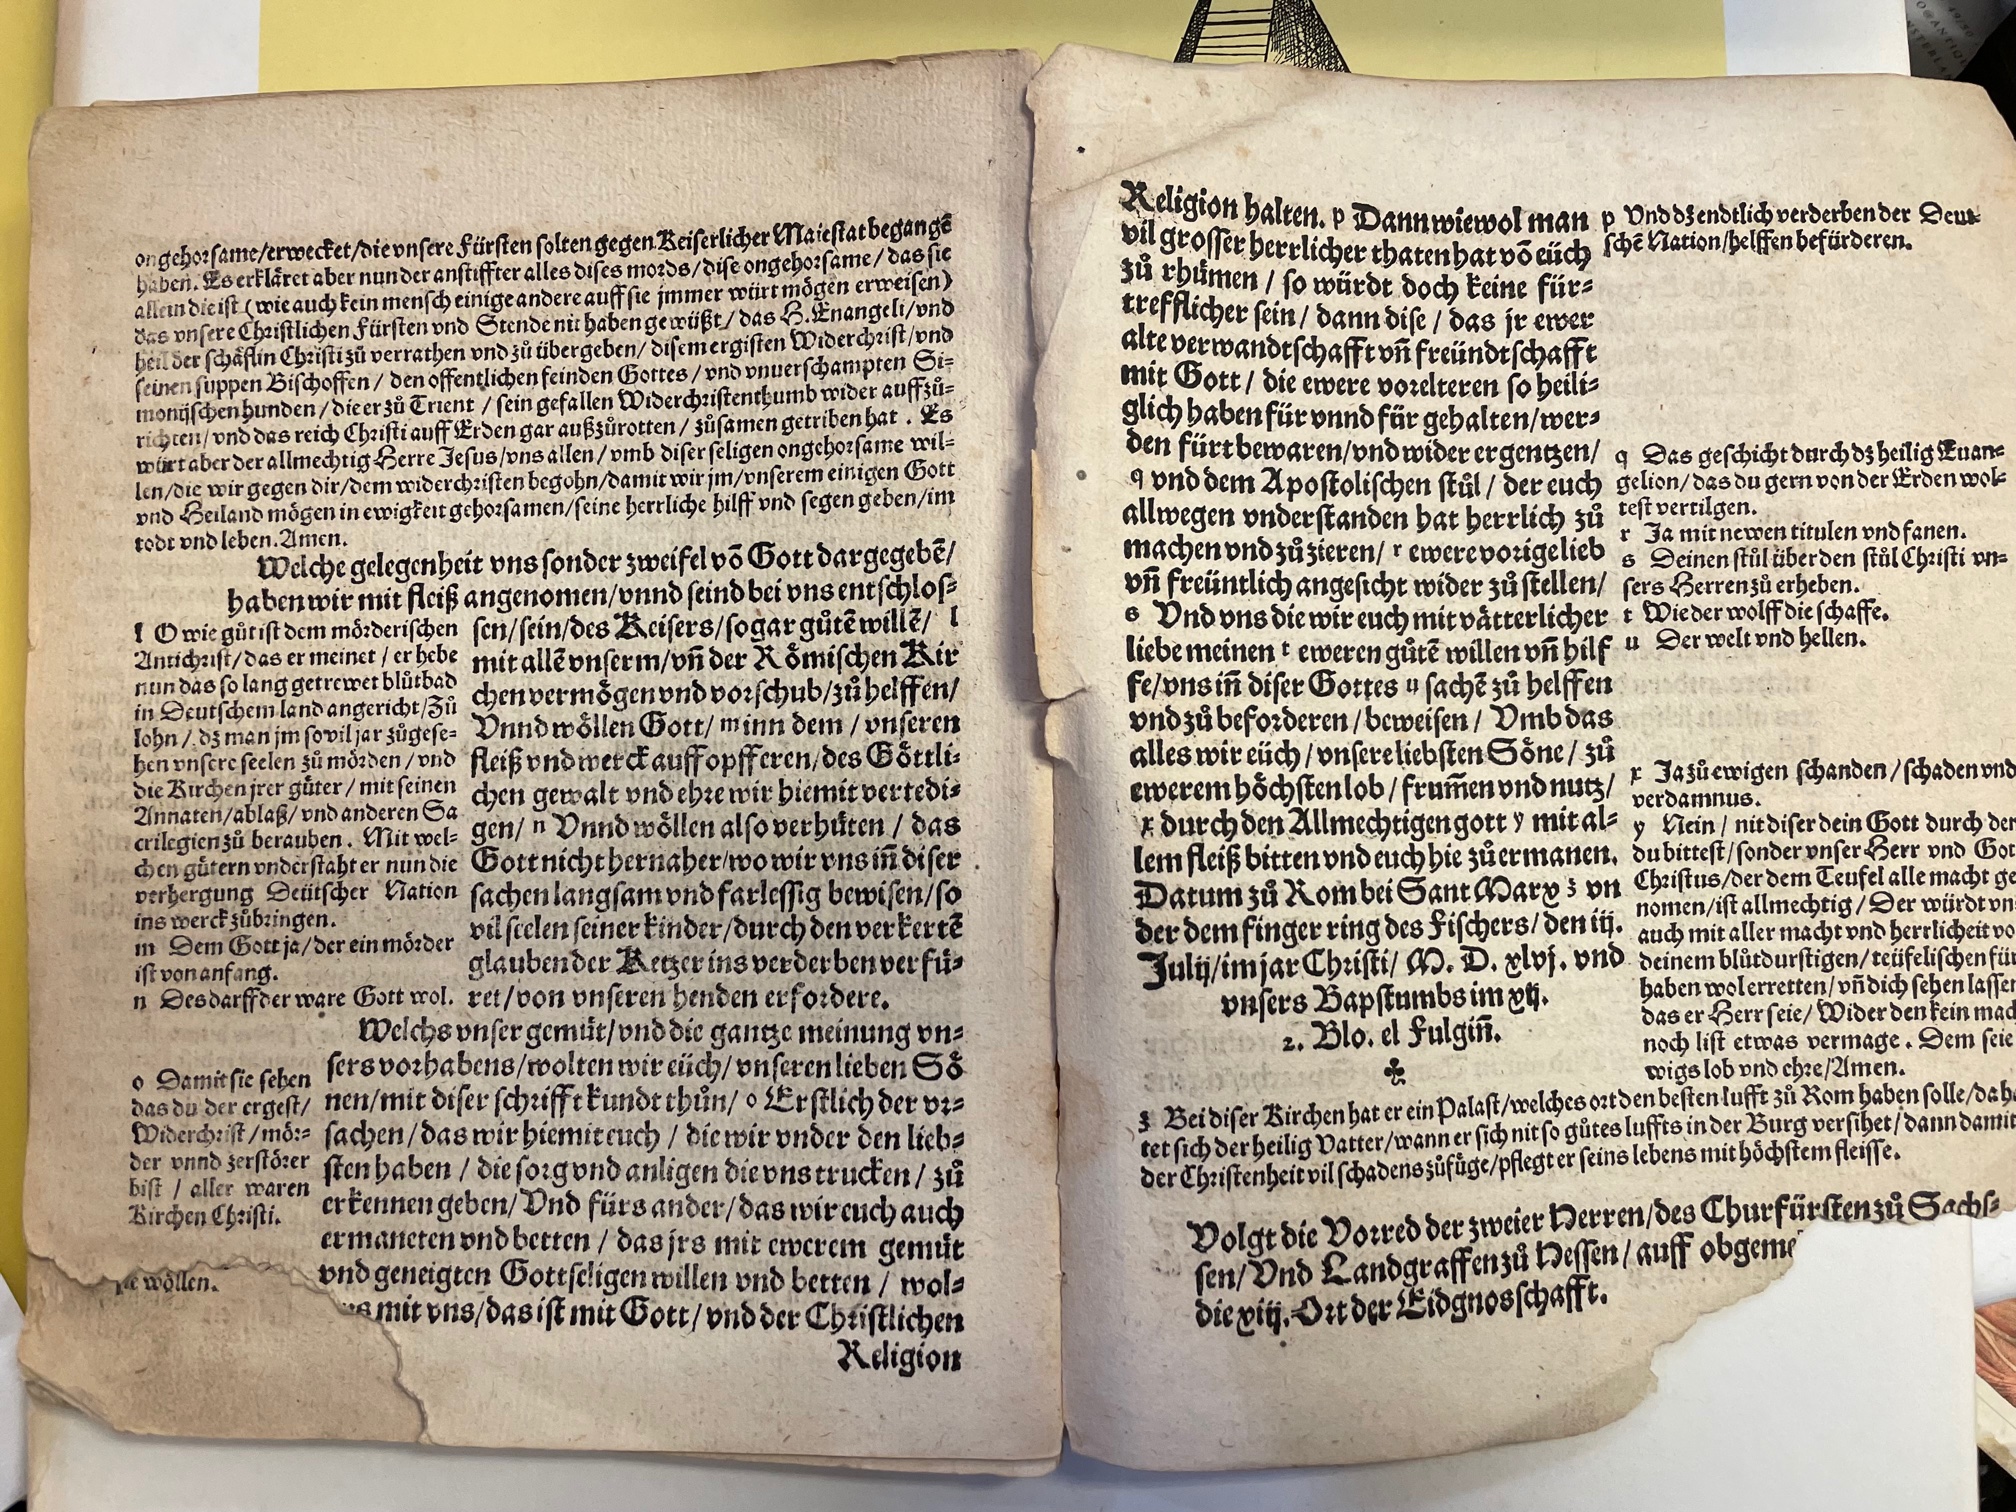 ongehorsame/erwecket/die vnsere Fürsten solten gegen Keiserlicher Maiestat begangē
haben. Es erkläret aber nun der anstiffter alles dises mords/dise ongehorsame/das sie
allein die ist (wie auch kein mensch einige andere auff sie jmmer würt mögen erweisen)
das vnsere Christlichen Fürsten vnd Stende nit haben gewüßt/das H. Enangeli/vnd
heil der schäflin Christi zů verrathen vnd zů übergeben/disem ergisten Widerchrist/vnd
seinen suppen Bischoffen/den offentlichen feinden Gottes/vnd vnuerschampten Si=
monijschen hunden/die er zů Trient/sein gefallen Widerchristenthumb wider auffzů=
richten/vnd das reich Christi auff Erden gar außzůrotten/zůsamen getriben hat. Es
würt aber der allmechtig Herre Jesus/vns allen/vmb diser seligen ongehorsame wil=
len/die wir gegen dir/dem widerchristen begohn/damit wir jm/vnserem einigen Gott
vnd Heiland mögen in ewigkeit gehorsamen/seine herrliche hilff vnd segen geben/im
todt vnd leben. Amen.
Welche gelegenheit vns sonder zweifel vō Gott dargegebē/
haben wir mit fleiß angenomen/vnnd seind bei vns entschlos=
sen/sein/des Keisers/so gar gůtē willē/ l
mit allē vnserm/vñ der Römischen Kir
chen vermögen vnd vorschub/zů helffen/
Vnnd wöllen Gott/ m inn dem/vnseren
fleiß vnd werck auffopfferen/des Göttli=
chen gewalt vnd ehre wir hiemit vertedi=
gen/ n Vnnd wöllen also verhüten/das
Gott nicht hernaher/wo wir vns iñ diser
sachen langsam vnd farlessig bewisen/so
vil seelen seiner kinder/durch den verkertē
glauben der Ketzer ins verderben verfü=
ret/von vnseren henden erfordere.
l O wie gůt ist dem mörderischen
Antichrist/das er meinet/er hebe
nun das so lang getrewet blůtbad
in Deutschem land angericht/Zů
lohn/dz man jm so vil jar zůgese=
hen vnsere seelen zů mörden/vnd
die Kirchen jrer güter/mit seinen
Annaten/ablaß/vnd anderen Sa
crilegien zů berauben. Mit wel=
chen gütern vnderstaht er nun die
verhergung Deütscher Nation
ins werck zůbringen.
m Dem Gott ja/der ein mörder
ist von anfang.
n Des darff der ware Gott wol.
Welchs vnser gemüt/vnd die gantze meinung vn=
sers vorhabens/wolten wir eüch/vnseren lieben Sö
nen/mit diser schrifft kundt thůn/ o Erstlich der vr=
sachen/das wir hiemit euch/die wir vnder den lieb=
sten haben/die sorg vnd anligen die vns trucken/zů
erkennen geben/Vnd fürs ander/das wir euch auch
ermaneten vnd betten/das jrs mit ewerem gemüt
vnd geneigten Gottseligen willen vnd betten/wol=
mit vns/das ist mit Gott/vnd der Christlichen
Religion
o Damit sie sehen
das du der ergest/
Widerchrist/mör=
der vnnd zerstörer
bist/aller waren
Kirchen Christi.
wöllen.
Religion halten. p Dann wiewol man
vil grosser herrlicher thaten hat vō eüch
zů rhümen/so würdt doch keine für=
trefflicher sein/dann dise/das jr ewer
alte verwandtschafft vñ freündtschafft
mit Gott/die ewere vorelteren so heili=
glich haben für vnnd für gehalten/wer=
den fürt bewaren/vnd wider ergentzen/
q vnd dem Apostolischen stůl/der euch
allwegen vnderstanden hat herrlich zů
machen vnd zů zieren/ r ewere vorige lieb
vñ freüntlich angesicht wider zů stellen/
s Vnd vns die wir euch mit vätterlicher
liebe meinen t eweren gůtē willen vñ hilf
fe/vns iñ diser Gottes u sachē zů helffen
vnd zů beforderen/beweisen/Vmb das
alles wir eüch/vnsere liebsten Söne/zů
ewerem höchsten lob/frum̄en vnd nutz/
x durch den Allmechtigen gott y mit al=
lem fleiß bitten vnd euch hie zů ermanen.
Datum zů Rom bei Sant Marx z vn
der dem finger ring des Fischers/den iij.
Julij/im jar Christi/M. D. xlvj. vnd
vnsers Bapstumbs im xij.
2. Blo. el Fulgiñ.
p Vnd dz endtlich verderben der Deut=
schē Nation/helffen befürderen.
q Das geschicht durch dz heilig Euan=
gelion/das du gern von der Erden wol=
test vertilgen.
r Ja mit newen titulen vnd fanen.
s Deinen stůl über den stůl Christi vn=
sers Herren zů erheben.
t Wie der wolff die schaffe.
u Der welt vnd hellen.
x Ja zů ewigen schanden/schaden vnd
verdamnus.
y Nein/nit diser dein Gott durch der
du bittest/sonder vnser Herr vnd Got
Christus/der dem Teufel alle macht ge
nomen/ist allmechtig/Der würdt vn
auch mit aller macht vnd herrlicheit vo
deinem blůtdurstigen/teüfelischen für
haben wol erretten/vñ dich sehen lassen
das er Herr seie/Wider den kein mac
noch list etwas vermage. Dem seie
wigs lob vnd ehre/Amen.
z Bei diser Kirchen hat er ein Palast/welches ort den besten lufft zů Rom haben solle/da ha
tet sich der heilig Vatter/wann er sich nit so gůtes luffts in der Burg versihet/dann damit
der Christenheit vil schadens zůfüge/pflegt er seins lebens mit höchstem fleisse.
Volgt die Vorred der zweier Herren/des Churfürsten zů Sachs=
sen/Vnd Landgraffen zů Hessen/auff obgeme
die xiij. Ort der Eidgnosschafft.